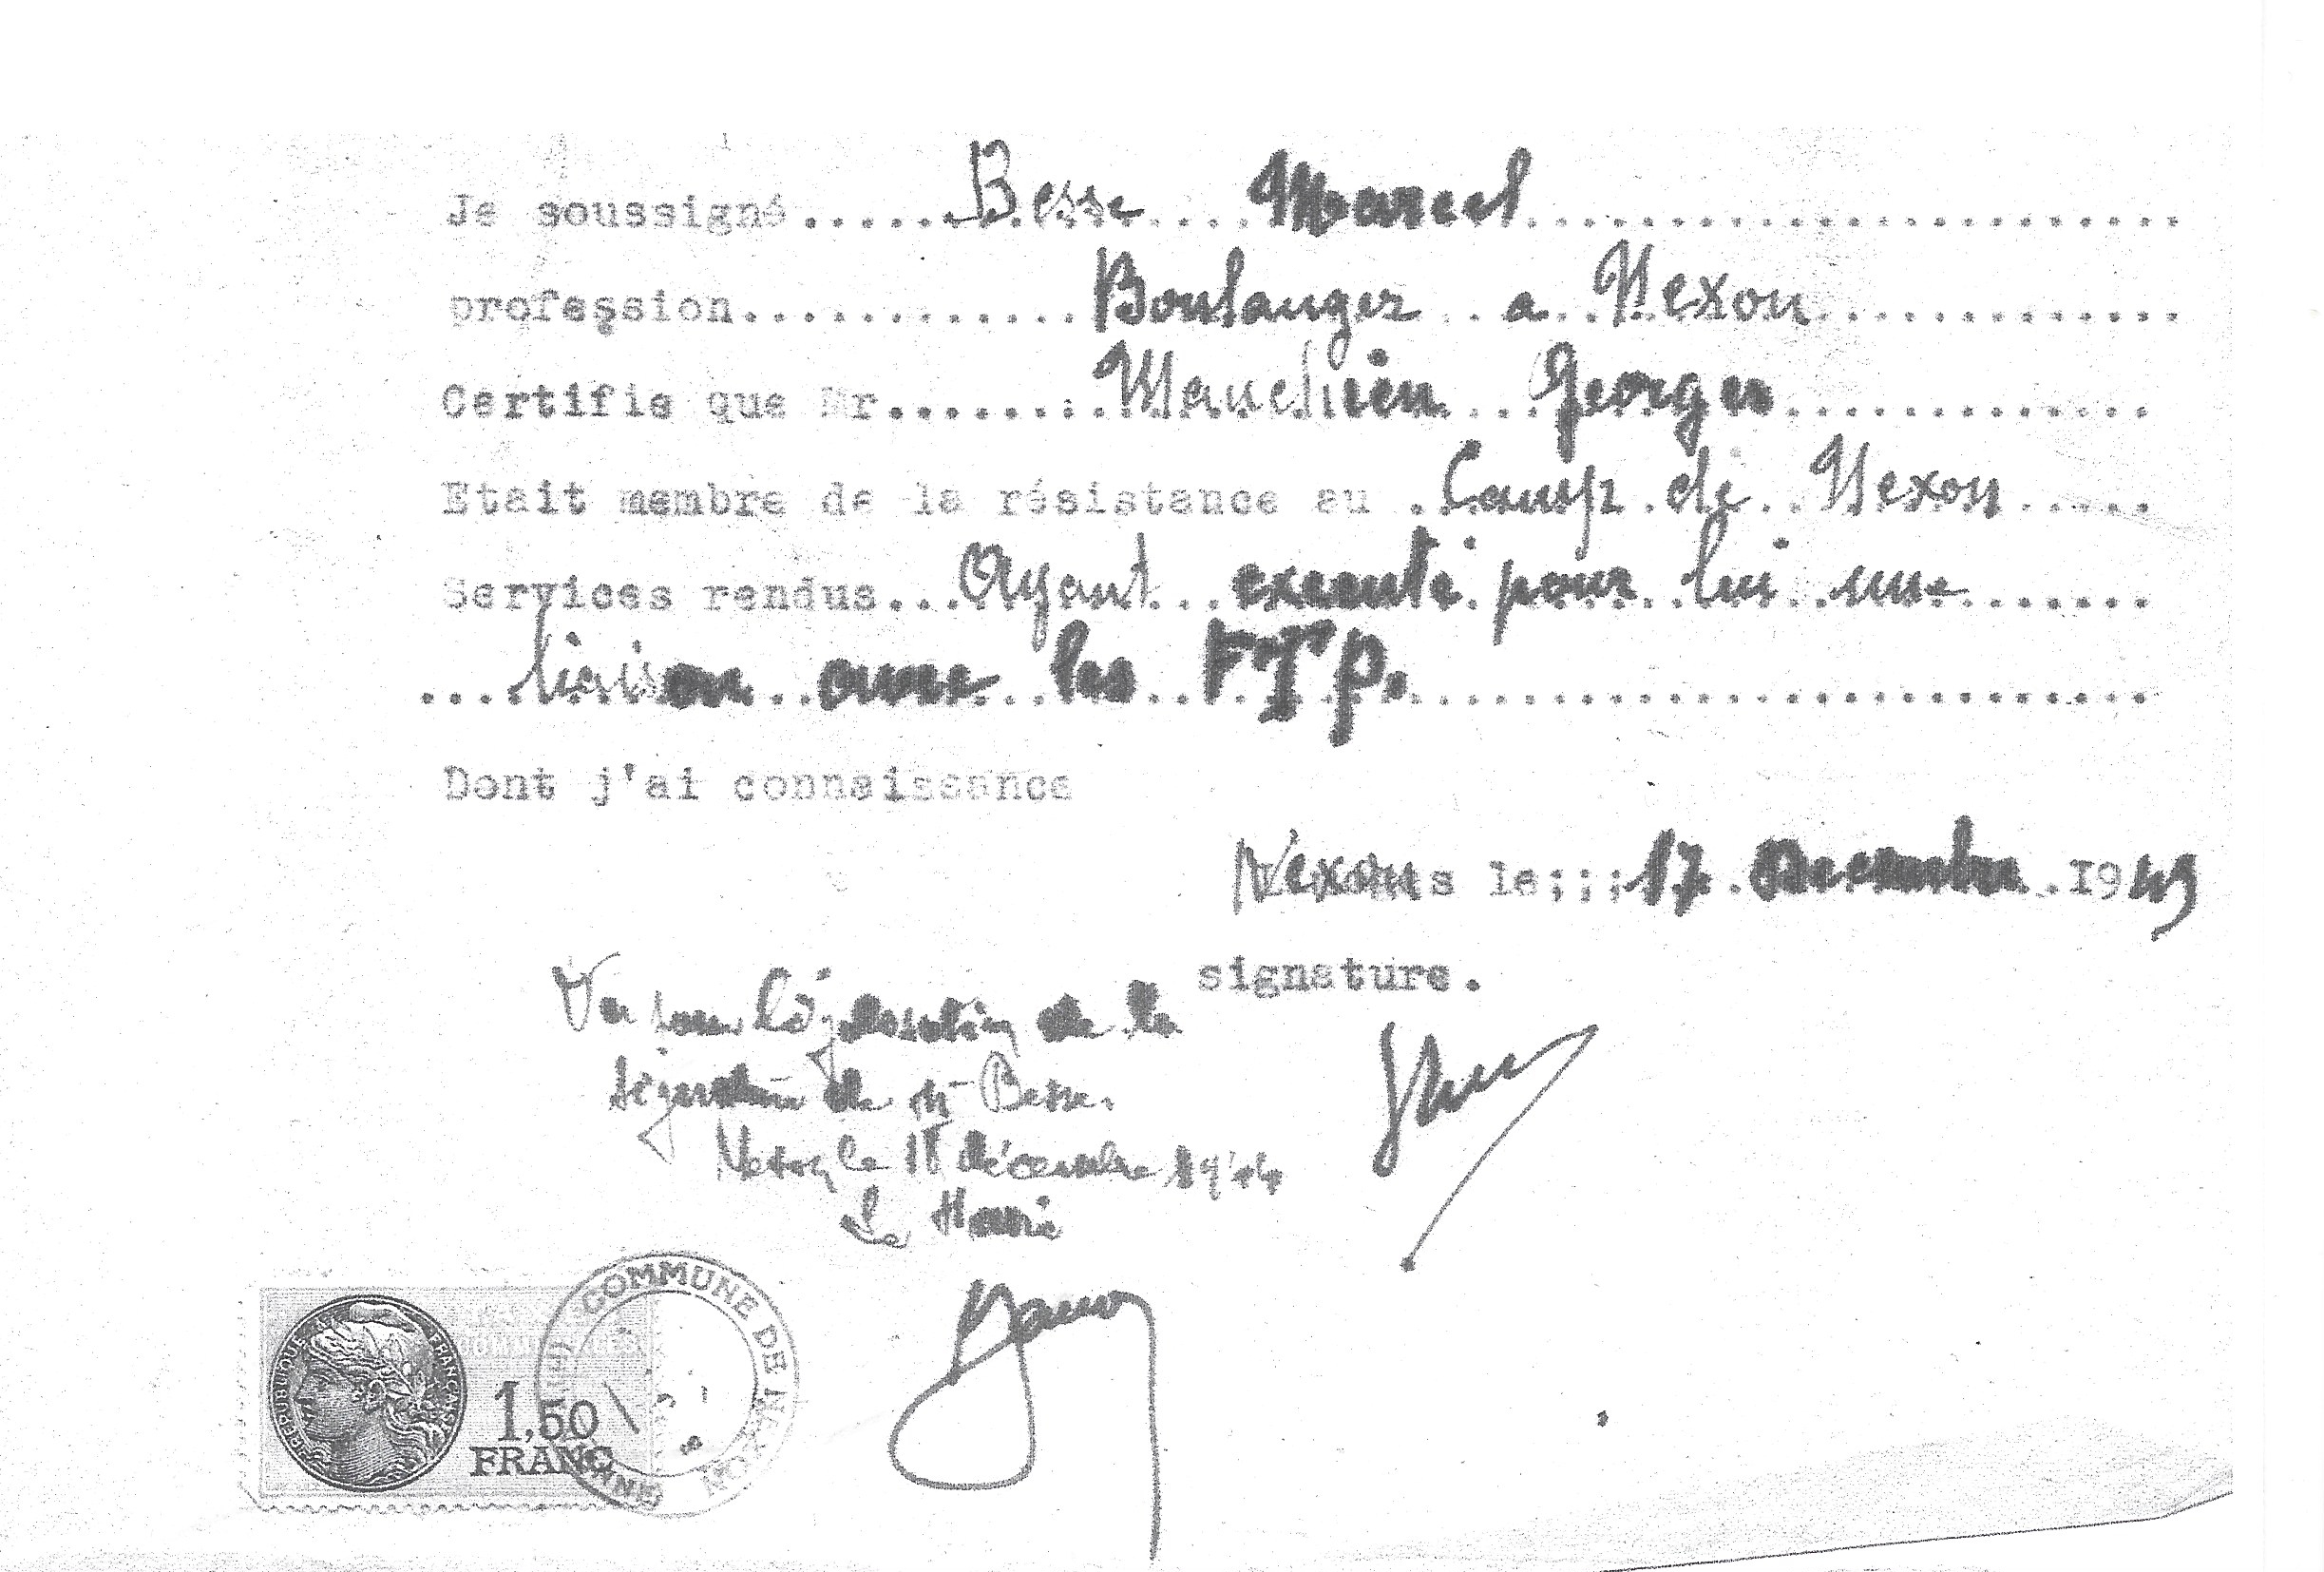 Je soussigné.....Besse Marcel
profession............Boulanger a Nexon
Certifie que Mr.......Georges
Etait membre de la résistance au .Camp de Nexon
Services rendus...Ayant executé pour lui une
...liaison avec les FTP.
Dont j'ai connaissance
Nexon le;;;17 Decembre.19
signature.
Vu pour légalisation de la
signature de Mr Besse.
Nexon le décembre 1944
Le Maire
COMMUNE DE NEXON
RÉPUBLIQUE FRANÇAISE
1,50
FRANC